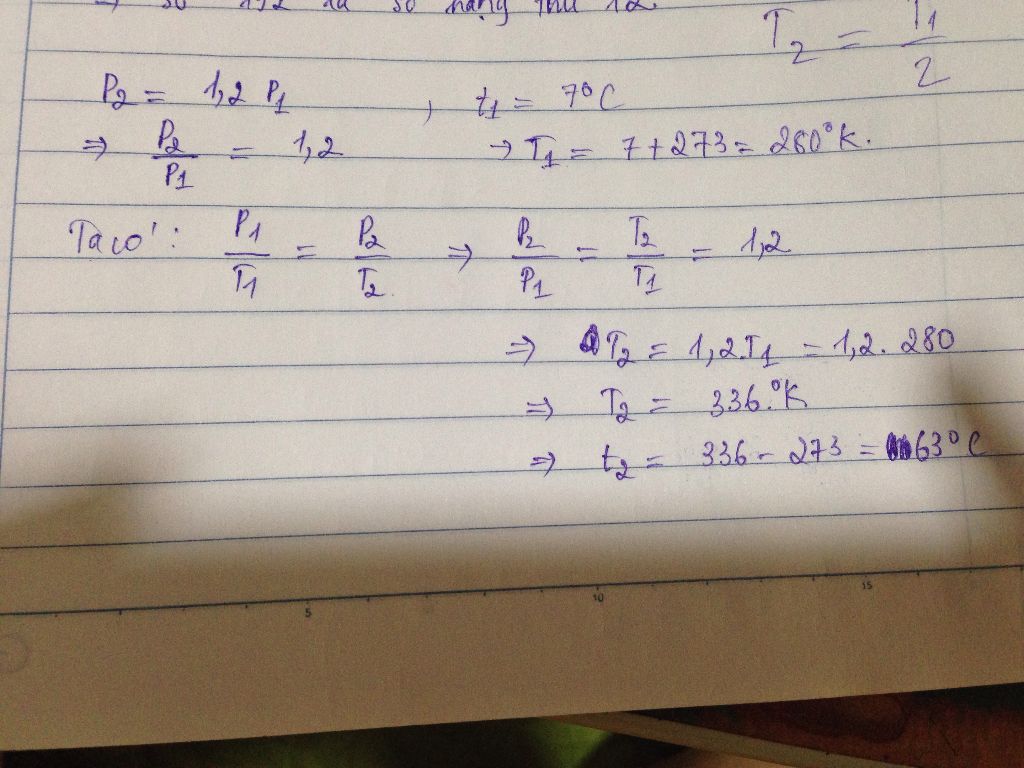 ⇒ số 192 là số hạng thứ 12.
T₂ = T₁/2
P₂ = 1,2 P₁ , t₁ = 7°C
⇒ P₂/P₁ = 1,2 → T₁ = 7+273 = 280°K.
Ta có: P₁/T₁ = P₂/T₂ ⇒ P₂/P₁ = T₂/T₁ = 1,2
⇒ T₂ = 1,2.T₁ = 1,2. 280
⇒ T₂ = 336.°K
⇒ t₂ = 336 - 273 = 63°C
5 10 15